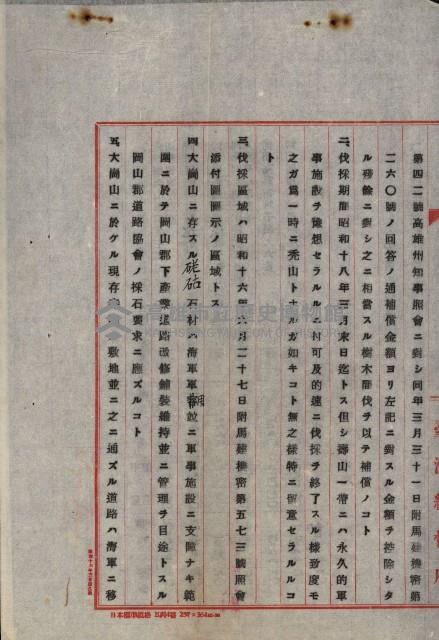 第四二號高雄州知事照會ニ對シ同年三月三十一日附馬建機密第
二六〇號ノ回答ノ通補償金額ヨリ左記ニ對スル金額ヲ控除シタ
ル殘餘ニ對シ之ニ相當スル樹木ノ伐ヲ以テ補償ノコト
二、伐採期間昭和十八年三月末日迄トス但シ壽山一帶ニハ永久的軍
事施設ヲ豫想セラルルニ付可及的速ニ伐採ヲ終了スル樣致度モ
之ガ爲一時ニ禿山トナルガ如キコト無之樣特ニ留意セラルルコ
ト
三、伐採區域ハ昭和十六年六月二十七日附馬建機密第五七三號照會
添付圖面圖示ノ區域トス
四、大崗山ニ存スル硓𥑮石材ハ海軍軍用設ニ軍事施設ニ支障ナキ範
圍ニ於テ岡山郡下產業道路改修鋪裝維持並ニ管理ヲ目途トスル
岡山郡道路協會ノ採石要求ニ應ズルコト
五、大崗山ニ於ケル現存 敷地並ニ之ニ通ズル道路ハ海軍ニ移
日本標準規格 B列4號 257×364
高雄市立歷史博物館